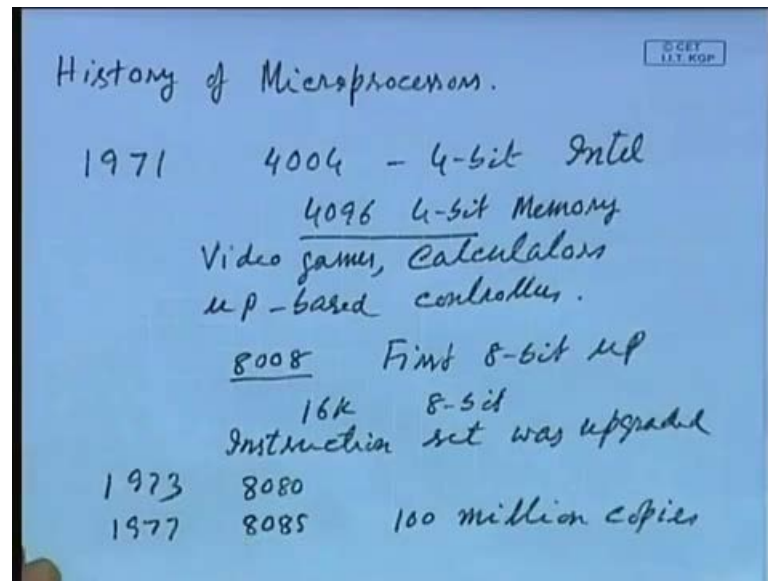 © CET
I.I.T. KGP
History of Microprocessors.
1971 4004 - 4-bit Intel
4096 4-bit Memory
Video games, Calculators
μp-based controllers.
8008 First 8-bit μp
16k 8-bit
Instruction set was upgraded
1973 8080
1977 8085 100 million copies